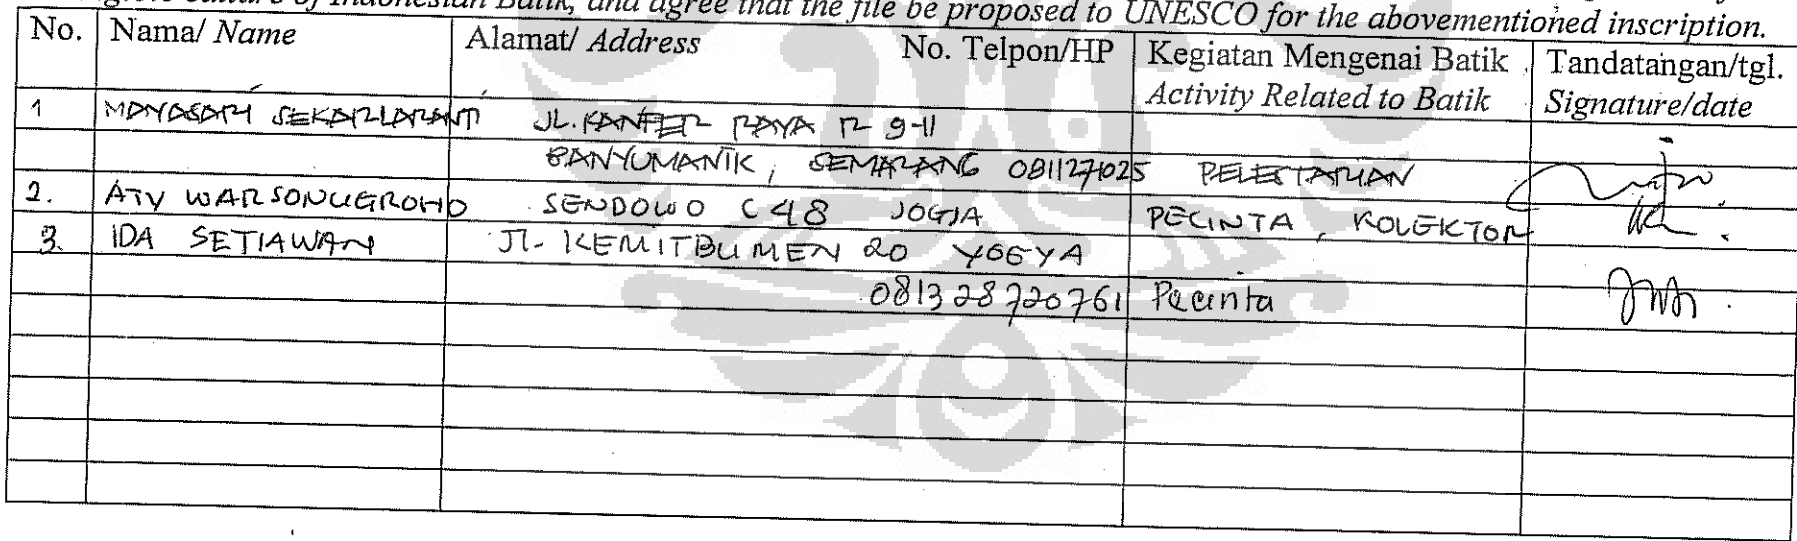 culture of Indonesian Batik, and agree that the file be proposed to UNESCO for the abovementioned inscription.
No. Nama/ Name Alamat/ Address No. Telpon/HP Kegiatan Mengenai Batik Tandatangan/tgl.
Activity Related to Batik Signature/date
1 MAYASARI SEKARLARANTI JL. KANFER RAYA R 9-11
BANYUMANIK, SEMARANG 0811271025 PELESTARIAN
2. ATY WARSONUGROHO SENDOWO C48 JOGJA PECINTA, KOLEKTOR
3. IDA SETIAWAN Jl. KEMITBUMEN 20 YOGYA
081328720761 Pecinta